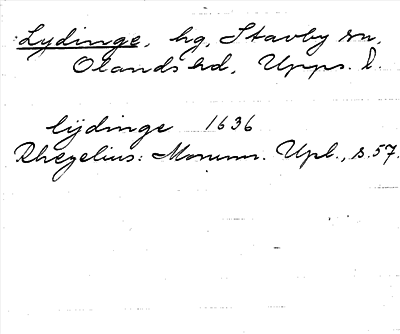 :Lydinge, hg, Stavby sn,
Olands hd, Upps. l.
lijdinge 1636
Rhezelius: Monum. Upl., s. 57.